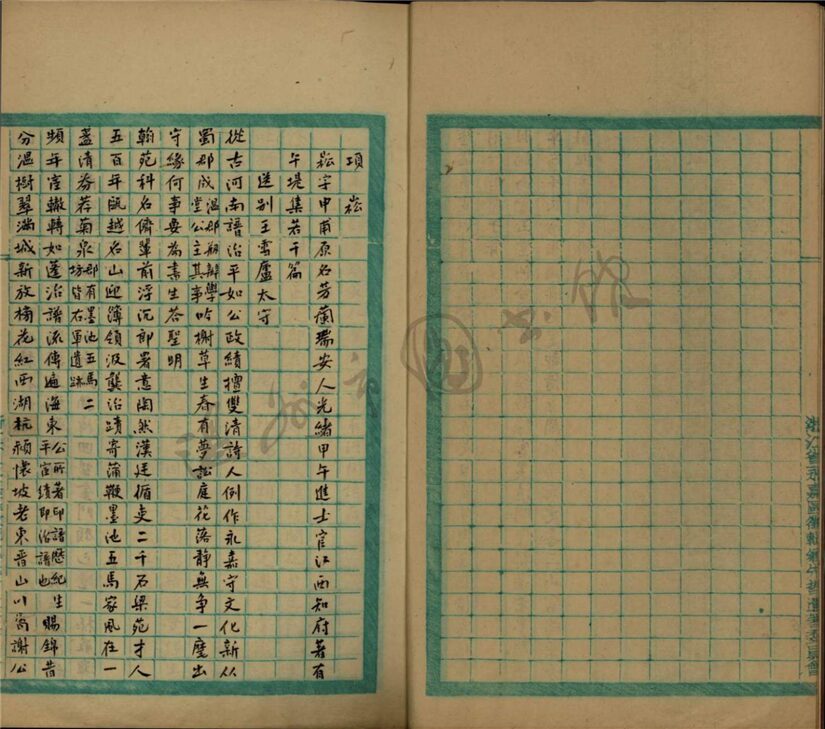 項崧
崧字申甫原名芳蘭瑞安人光緒甲午進士官江西知府著有
午堤集若干篇
送別王雪廬太守
從古河南譜治平如公政績擅雙清詩人例作永嘉守文化新從
蜀郡成溫郡朔辦學堂公主其事吟榭草生春有夢訟庭花落靜無爭一麾出
守緣何事要為蒼生答聖明
翰苑科名儕輩前浮沉郎署意陶然漢廷循吏二千石梁苑才人
五百年甌越名山迎簿領汲龔治蹟寄蒲鞭墨池五馬家風在一
盞清芬荐菊泉郡有墨池五馬二坊皆右軍遺跡
頻年宦轍轉如蓬治譜流傳遍海東公所著印譜歷紀生平宦績即治譜也賜錦昔
分溫樹翠滿城新放梅花紅西湖杭潁懷坡老東晉山川當謝公